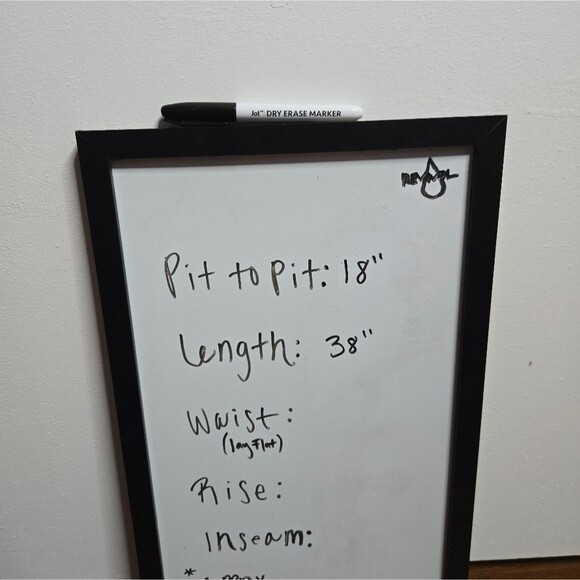 Jot™ DRY ERASE MARKER
REVIVAL
Pit to Pit: 18"
Length: 38"
Waist:
(lay Flat)
Rise:
Inseam:
*